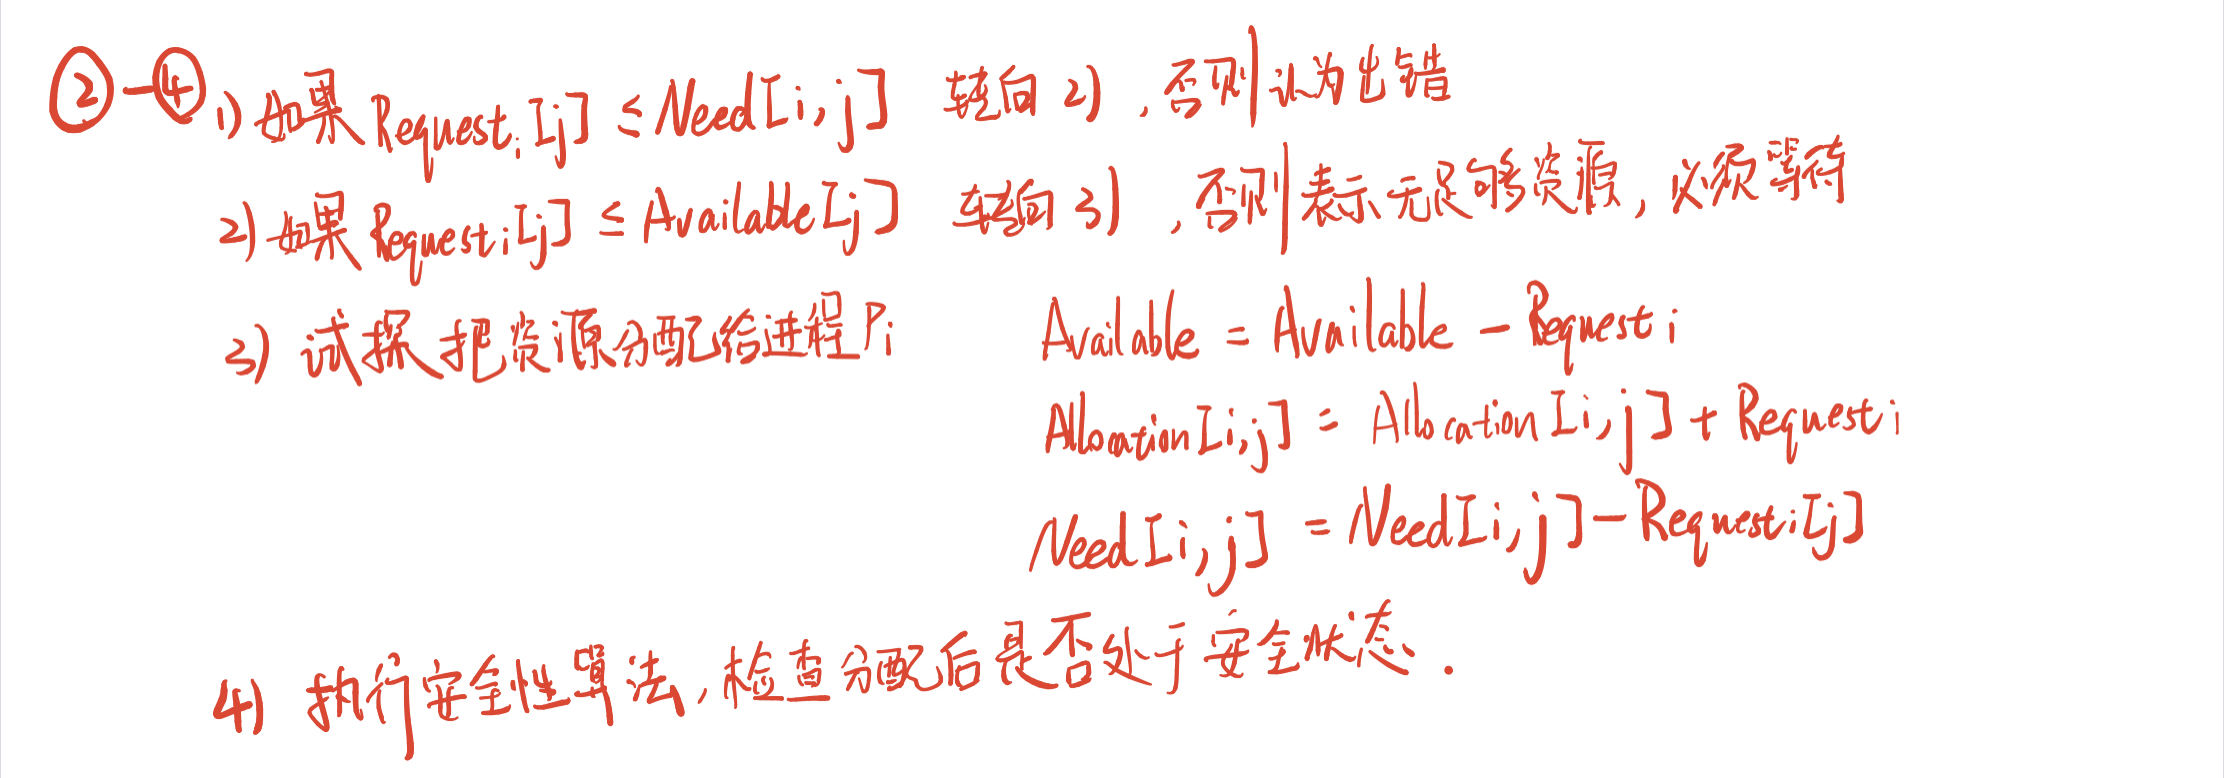 ②-④ 1) 如果 Requestᵢ[j] ≤ Need[i,j] 转向 2) ,否则认为出错
2) 如果 Requestᵢ[j] ≤ Available[j] 转向 3) ,否则表示无足够资源,必须等待
3) 试探把资源分配给进程Pᵢ Available = Available - Requestᵢ
Allocation[i,j] = Allocation[i,j] + Requestᵢ
Need[i,j] = Need[i,j] - Requestᵢ[j]
4) 执行安全性算法,检查分配后是否处于安全状态.